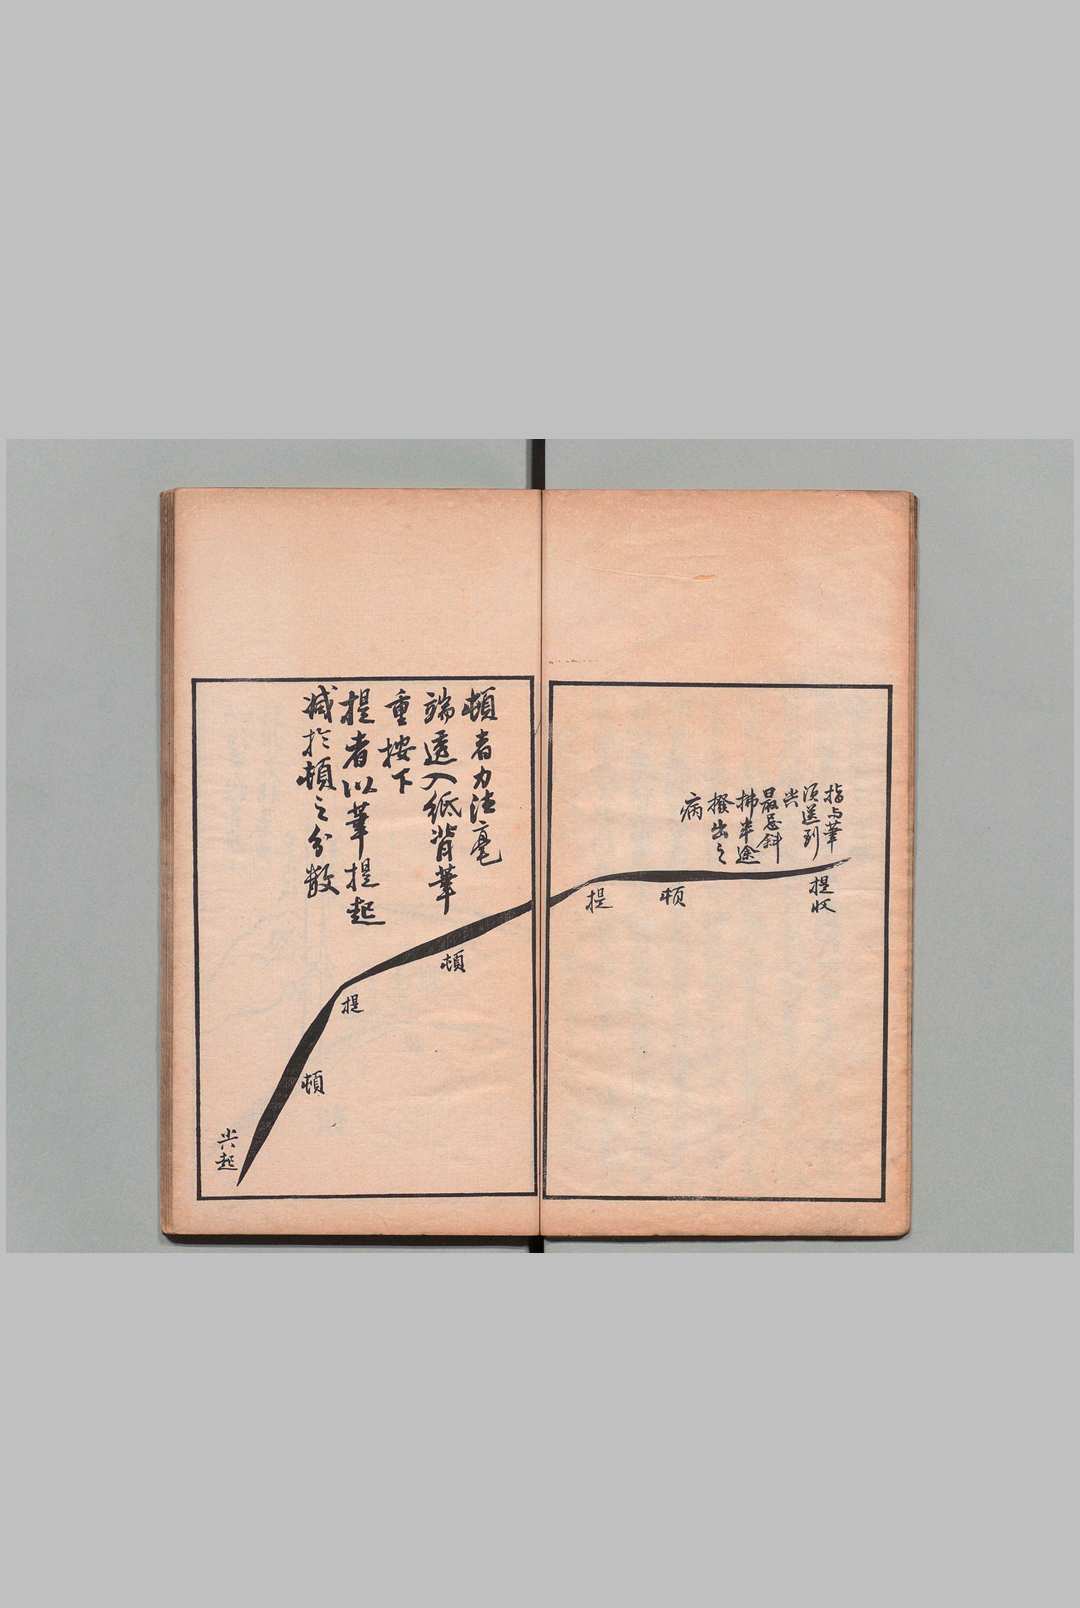 指与筆
須送到
尖
最忌斜
拂半途
撥出之
病
提收
頓
提
頓者力注毫
端透入紙背筆
重按下
提者以筆提起
減於頓之分數
頓
提
頓
尖起